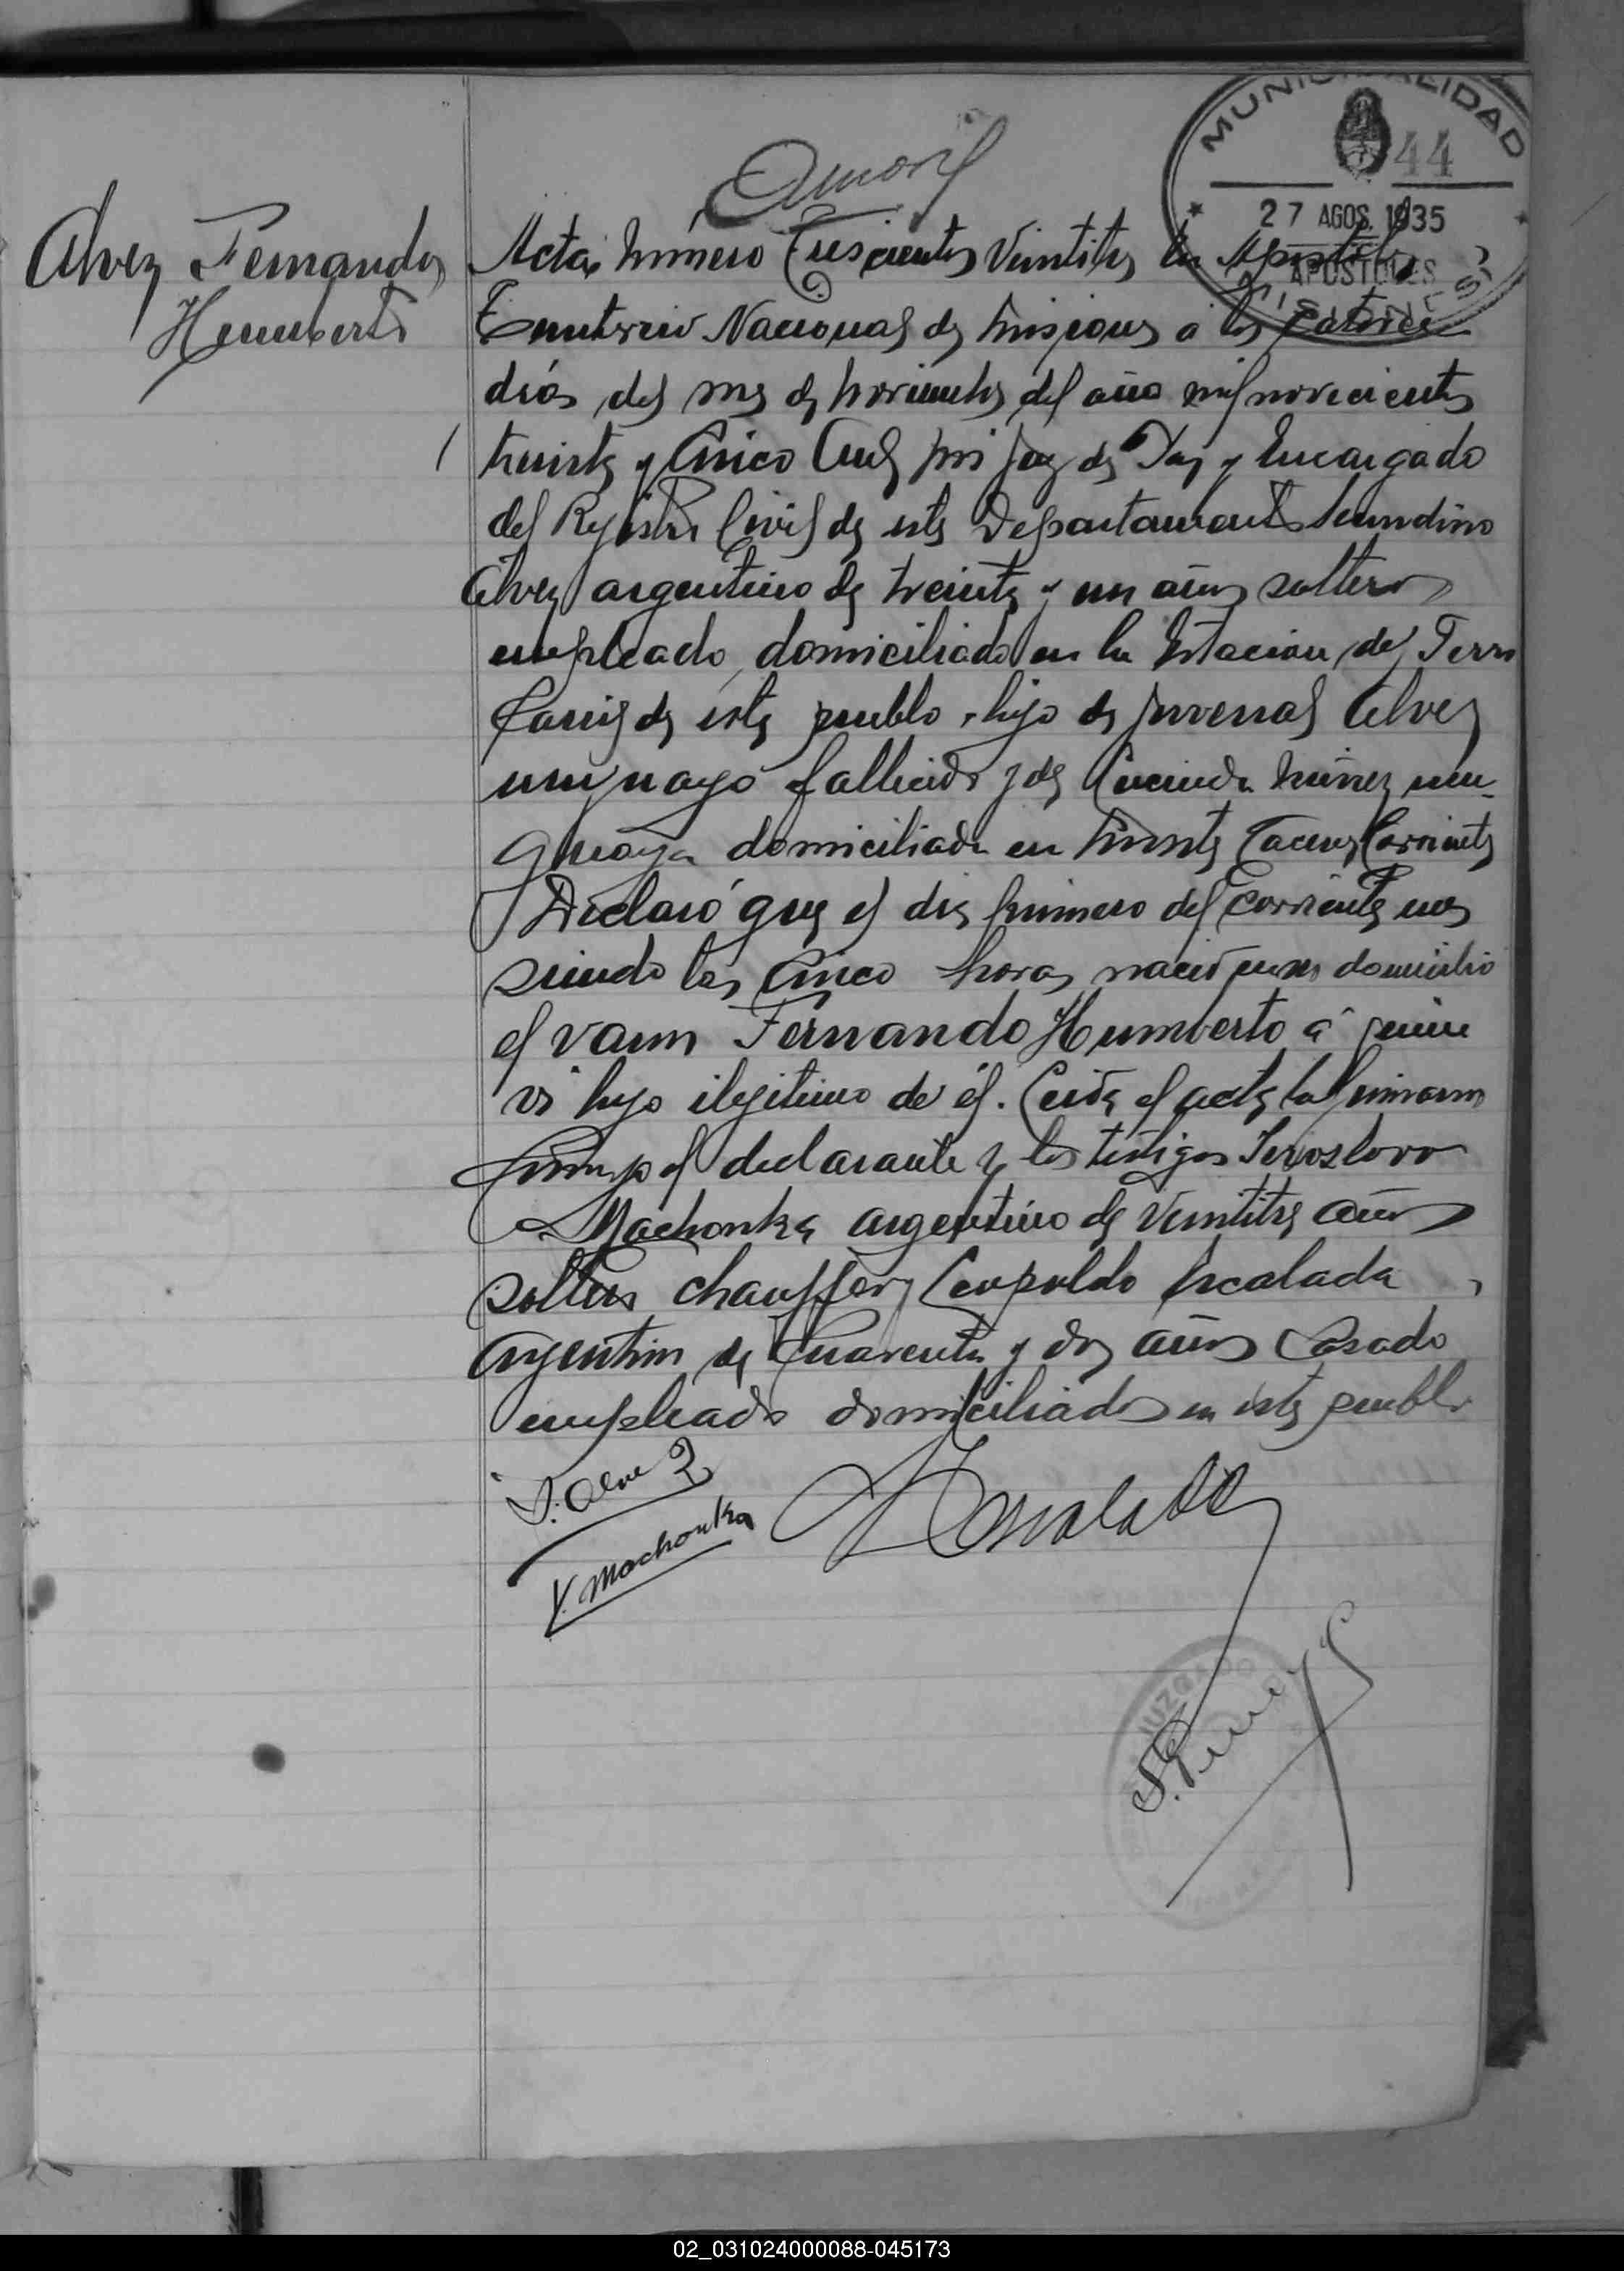 MUNICIPALIDAD
44
27 AGOS. 1935
APOSTOLES
MISIONES
Alvez Fernando
Humberto
Acta Número Trescientos Veintitres En Apostoles
Territorio Nacional de Misiones a los Catorce
días del mes de Noviembre del año mil novecientos
treinta y Cinco Ante mi Juez de Paz y Encargado
del Registro Civil de este Departamento Secundino
Alvez argentino de treinta y un años soltero
empleado domiciliado en la Estacion del Ferro
Carril de este pueblo, hijo de Juvenal Alvez
uruguayo fallecido y de Lucinda Núnez uru-
guaya domiciliada en Monte Caseros Corrientes
Declaró que el dia primero del Corriente mes
siendo las Cinco horas nació en su domicilio
el varon Fernando Humberto á quien
vi hijo ilegitimo de él. Leida el acta la firmaron
Conmigo el declarante y los testigos
Machonka argentino de Veintitres años
soltero chauffer y Leopoldo Escalada
Argentino de Cuarenta y dos años Casado
empleado domiciliados en este pueblo
S. Alvez
Y. Machonka
L Escalada
JUZGADO
02_031024000088-045173